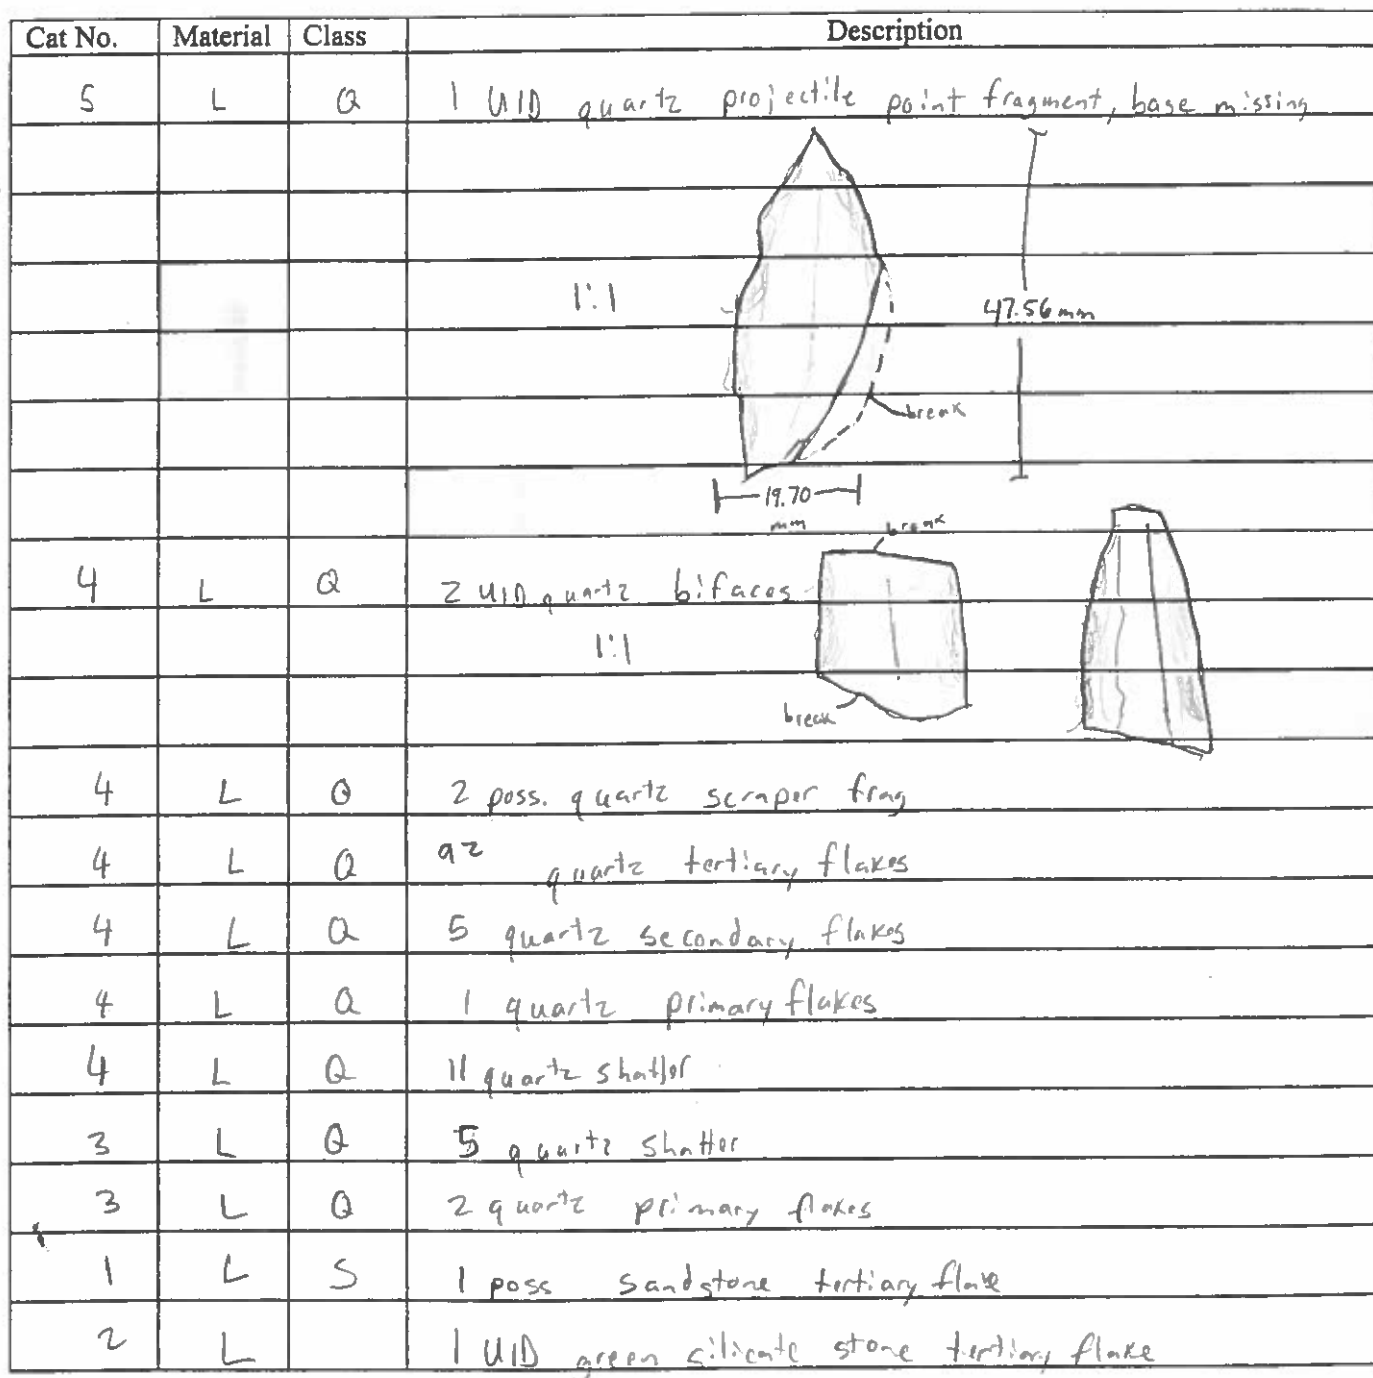 Cat No. Material Class Description
5 L Q 1 UID quartz projectile point fragment, base missing
1:1
47.56 mm
break
19.70
mm
break
4 L Q 2 UID quartz bifaces
1:1
break
4 L Q 2 poss. quartz scraper frag
4 L Q 92 quartz tertiary flakes
4 L Q 5 quartz secondary flakes
4 L Q 1 quartz primary flakes
4 L Q 11 quartz shatter
3 L Q 5 quartz shatter
3 L Q 2 quartz primary flakes
1 L S 1 poss sandstone tertiary flake
2 L 1 UID green silicate stone tertiary flake